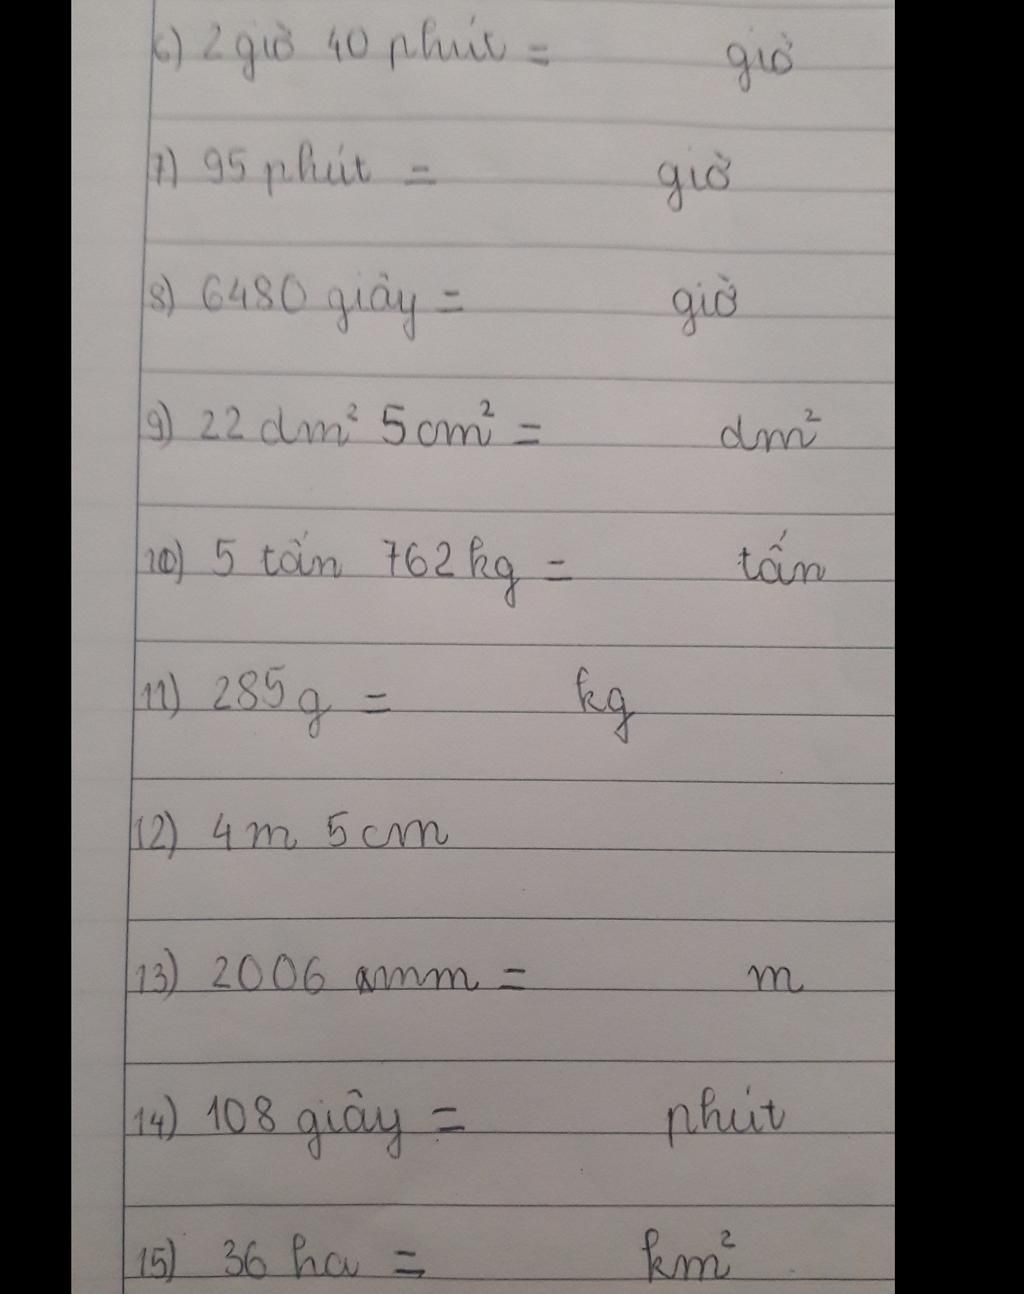 6) 2 giờ 40 phút = giờ
7) 95 phút = giờ
8) 6480 giây = giờ
9) 22 dm² 5cm² = dm²
10) 5 tấn 762 kg = tấn
11) 285g = kg
12) 4m 5cm
13) 2006 mm = m
14) 108 giây = phút
15) 36 ha = km²